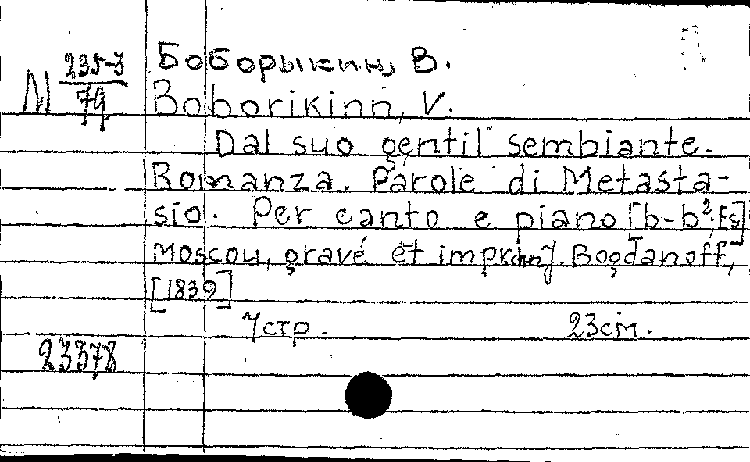 М 235-3
79
Боборыкин, В.
Boborikinn, V.
Dal suo gentil sembiante.
Romanza. Parole di Metasta-
sio. Per canto e piano [b-b², Es]
Moscou, gravé et imprim J. Bogdanoff,
[1839]
7стр. 23см.
23378